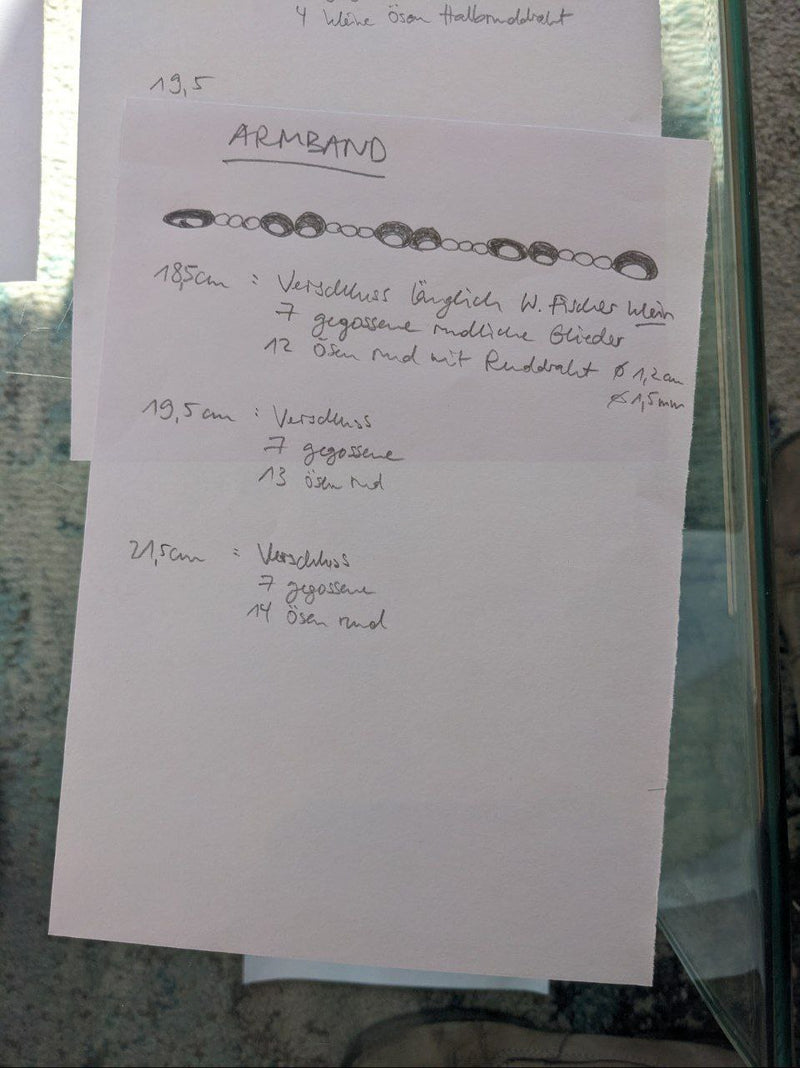 4 kleine Ösen Halbrunddraht
19,5
ARMBAND
18,5cm : Verschluss länglich W. Fischer klein
7 gegossene rundliche Glieder
12 Ösen rund mit Runddraht ∅ 1,2cm
∅ 1,5mm
19,5cm : Verschluss
7 gegossene
13 ösen rund
21,5cm : Verschluss
7 gegossene
14 ösen rund